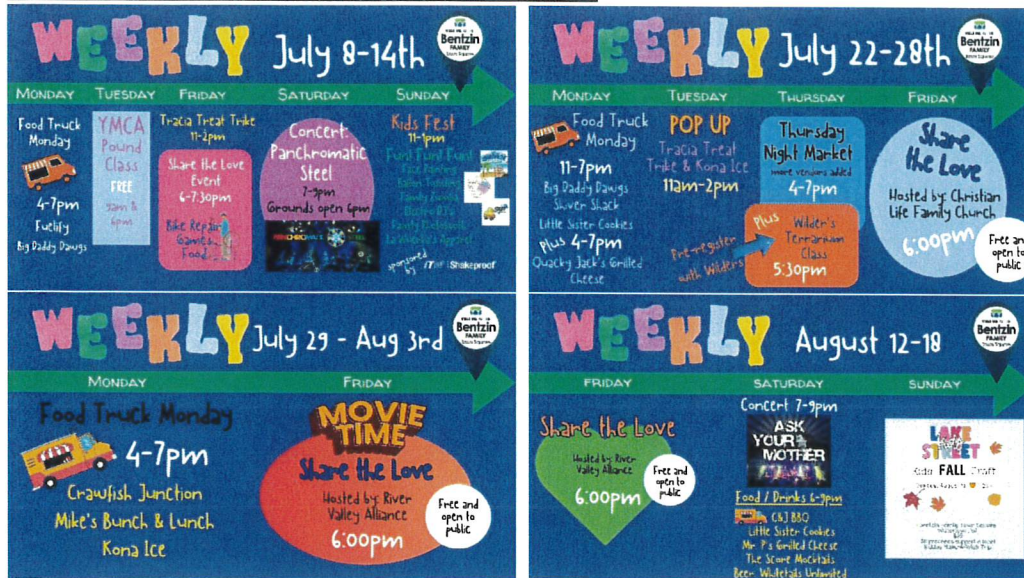 WEEKLY July 8-14th
Bentzin
FAMILY
MONDAY TUESDAY FRIDAY SATURDAY SUNDAY
Food Truck
Monday
4-7pm
Fuelify
Big Daddy Dawgs
YMCA
Pound
Class
FREE
9am &
6pm
Tracia Treat Trike
11-2pm
Share the Love
Event
6-7:30pm
Bike Repair
Games
Food
Concert:
Panchromatic
Steel
7-9pm
Grounds open 6pm
PANCHROMATIC STEEL
Kids Fest
11-1pm
Fun! Fun! Fun!
Face Painting
sponsored
by
ITW Shakeproof
WEEKLY July 22-28th
Bentzin
FAMILY
MONDAY TUESDAY THURSDAY FRIDAY
Food Truck
Monday
11-7pm
Big Daddy Dawgs
Shiver Shack
Little Sister Cookies
Plus 4-7pm
Quacky Jack's Grilled
Cheese
POP UP
Tracia Treat
Trike & Kona Ice
11am-2pm
Pre-register
with Wilders
Thursday
Night Market
more vendors added
4-7pm
Plus
Wilder's
Terrarium
Class
5:30pm
Share
the Love
Hosted by: Christian
Life Family Church
6:00pm
Free and
open to
public
WEEKLY July 29 - Aug 3rd
Bentzin
FAMILY
MONDAY FRIDAY
Food Truck Monday
4-7pm
Crawfish Junction
Mike's Bunch & Lunch
Kona Ice
MOVIE
TIME
Share the Love
Hosted by: River
Valley Alliance
6:00pm
Free and
open to
public
WEEKLY August 12-18
Bentzin
FAMILY
FRIDAY SATURDAY SUNDAY
Share the Love
Hosted by: River
Valley Alliance
6:00pm
Free and
open to
public
Concert 7-9pm
ASK
YOUR
MOTHER
Food / Drinks 6-9pm
C&J BBQ
Little Sister Cookies
Mr. P's Grilled Cheese
The Score Mocktails
Beer Whitetails Unlimited
LAKE
STREET
Kids FALL Craft